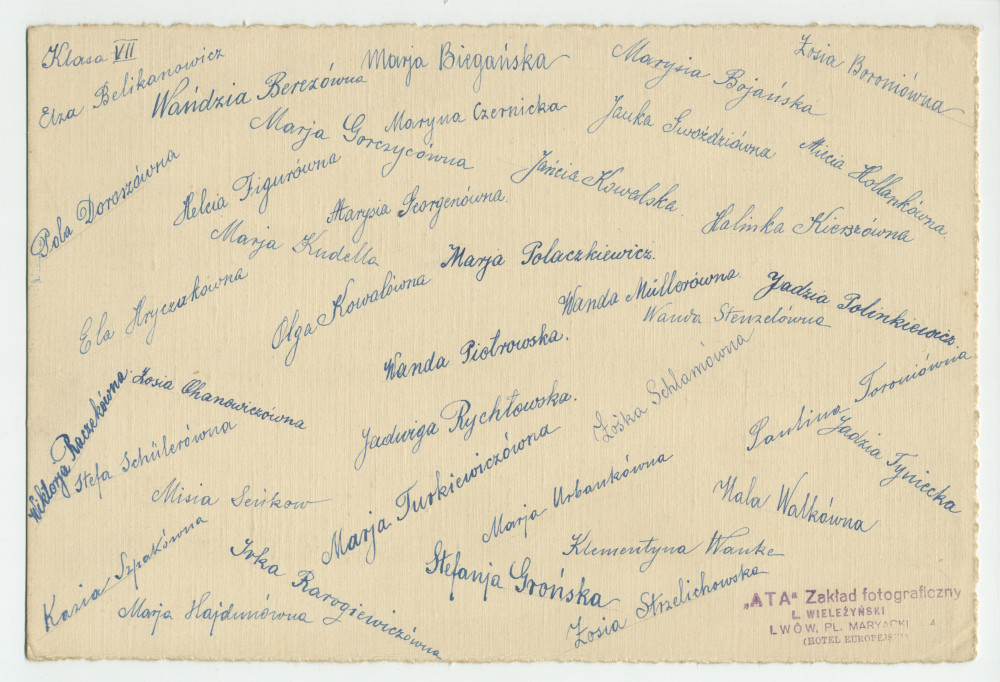 Klasa VII
Elza Belikanowicz
Wańdzia Berezówna
Marja Biegańska
Marysia Bojańska
Zosia Boroniówna
Maryna Czernicka
Marja Gorczycówna
Janka Gwoździówna
Micia Hollankówna.
Pola Doroszówna
Helcia Figurówna
Marysia Georgenówna.
Jańcia Kowalska.
Halinka Kierszówna
Marja Kudella
Marja Polaczkiewicz.
Ela Hryczakówna
Olga Kowalówna
Wanda Müllerówna
Jadzia Polinkiewicz.
Wanda Stenzelówna
Wanda Piotrowska.
Wiktorja Raczekówna.
Zosia Ohanowiczówna
Jadwiga Rychłowska.
Zośka Schlamówna
Paulina Toroniówna
Jadzia Tyniecka
Stefa Schülerówna
Misia Seńkow
Marja Turkiewiczówna
Marja Urbankówna
Hala Walkówna
Kazia Szpakówna
Irka Rarogiewiczówna
Stefanja Grońska
Klementyna Wanke
Marja Hajdunówna
Zosia Strzelichowska
„ATA" Zakład fotograficzny
L. WIELEŻYŃSKI
LWÓW, PL. MARYACKI 4
(HOTEL EUROPEJSKI)